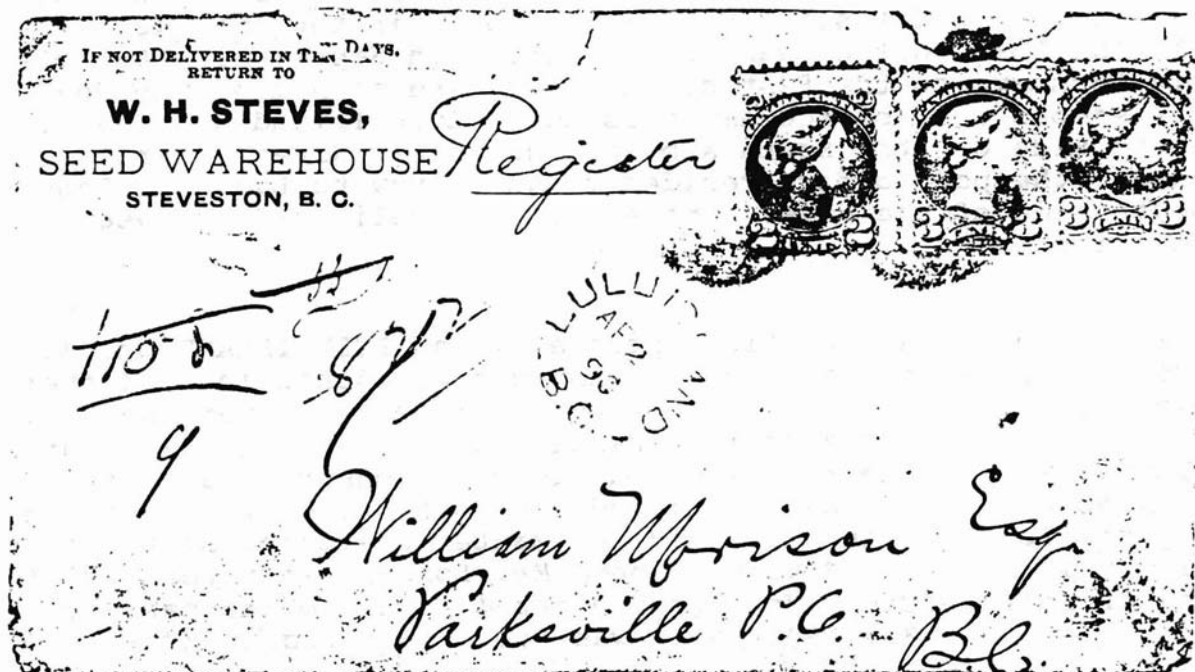 IF NOT DELIVERED IN TEN DAYS,
RETURN TO
W. H. STEVES,
SEED WAREHOUSE
STEVESTON, B. C.
Register
2 2
3 3
3 3
110
8
9
LULU AND
AP 2
B.C.
William Morison Esq.
Parksville P.O.
B.C.